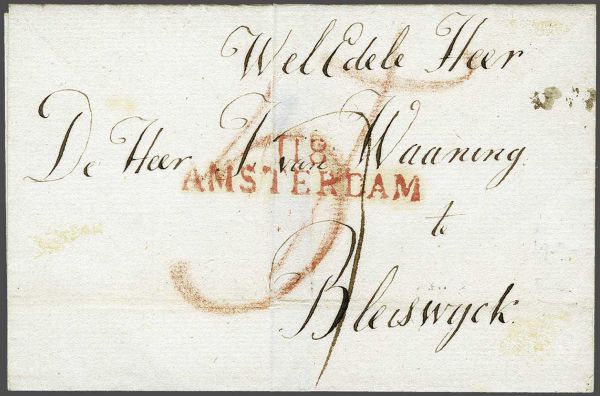 WelEdele Heer
De Heer J. van Waaning
118
AMSTERDAM
te
Bleiswyck